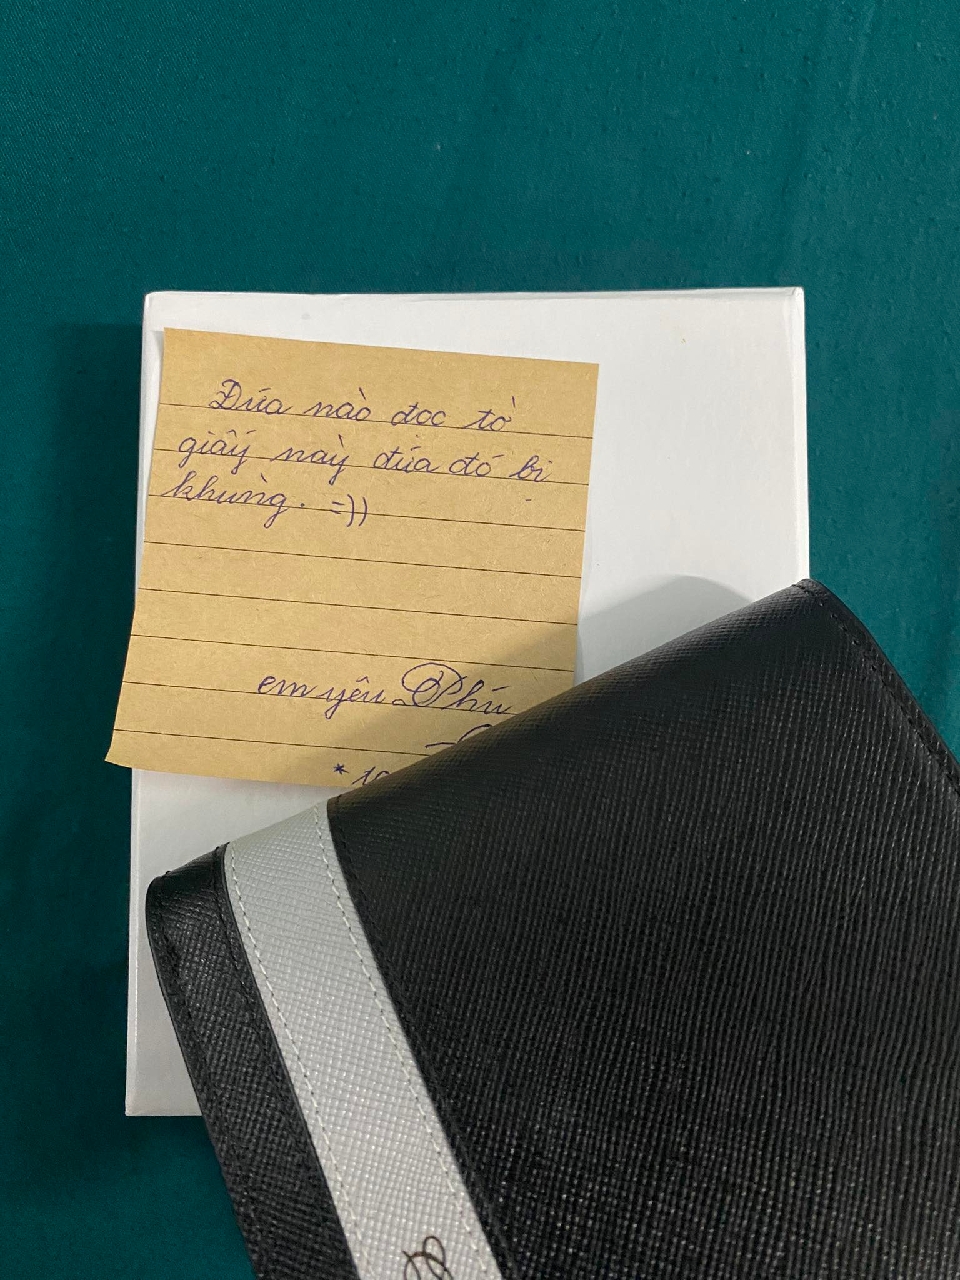 Đứa nào đọc tờ
giấy này đứa đó bị
khùng. =))
em yêu Phú